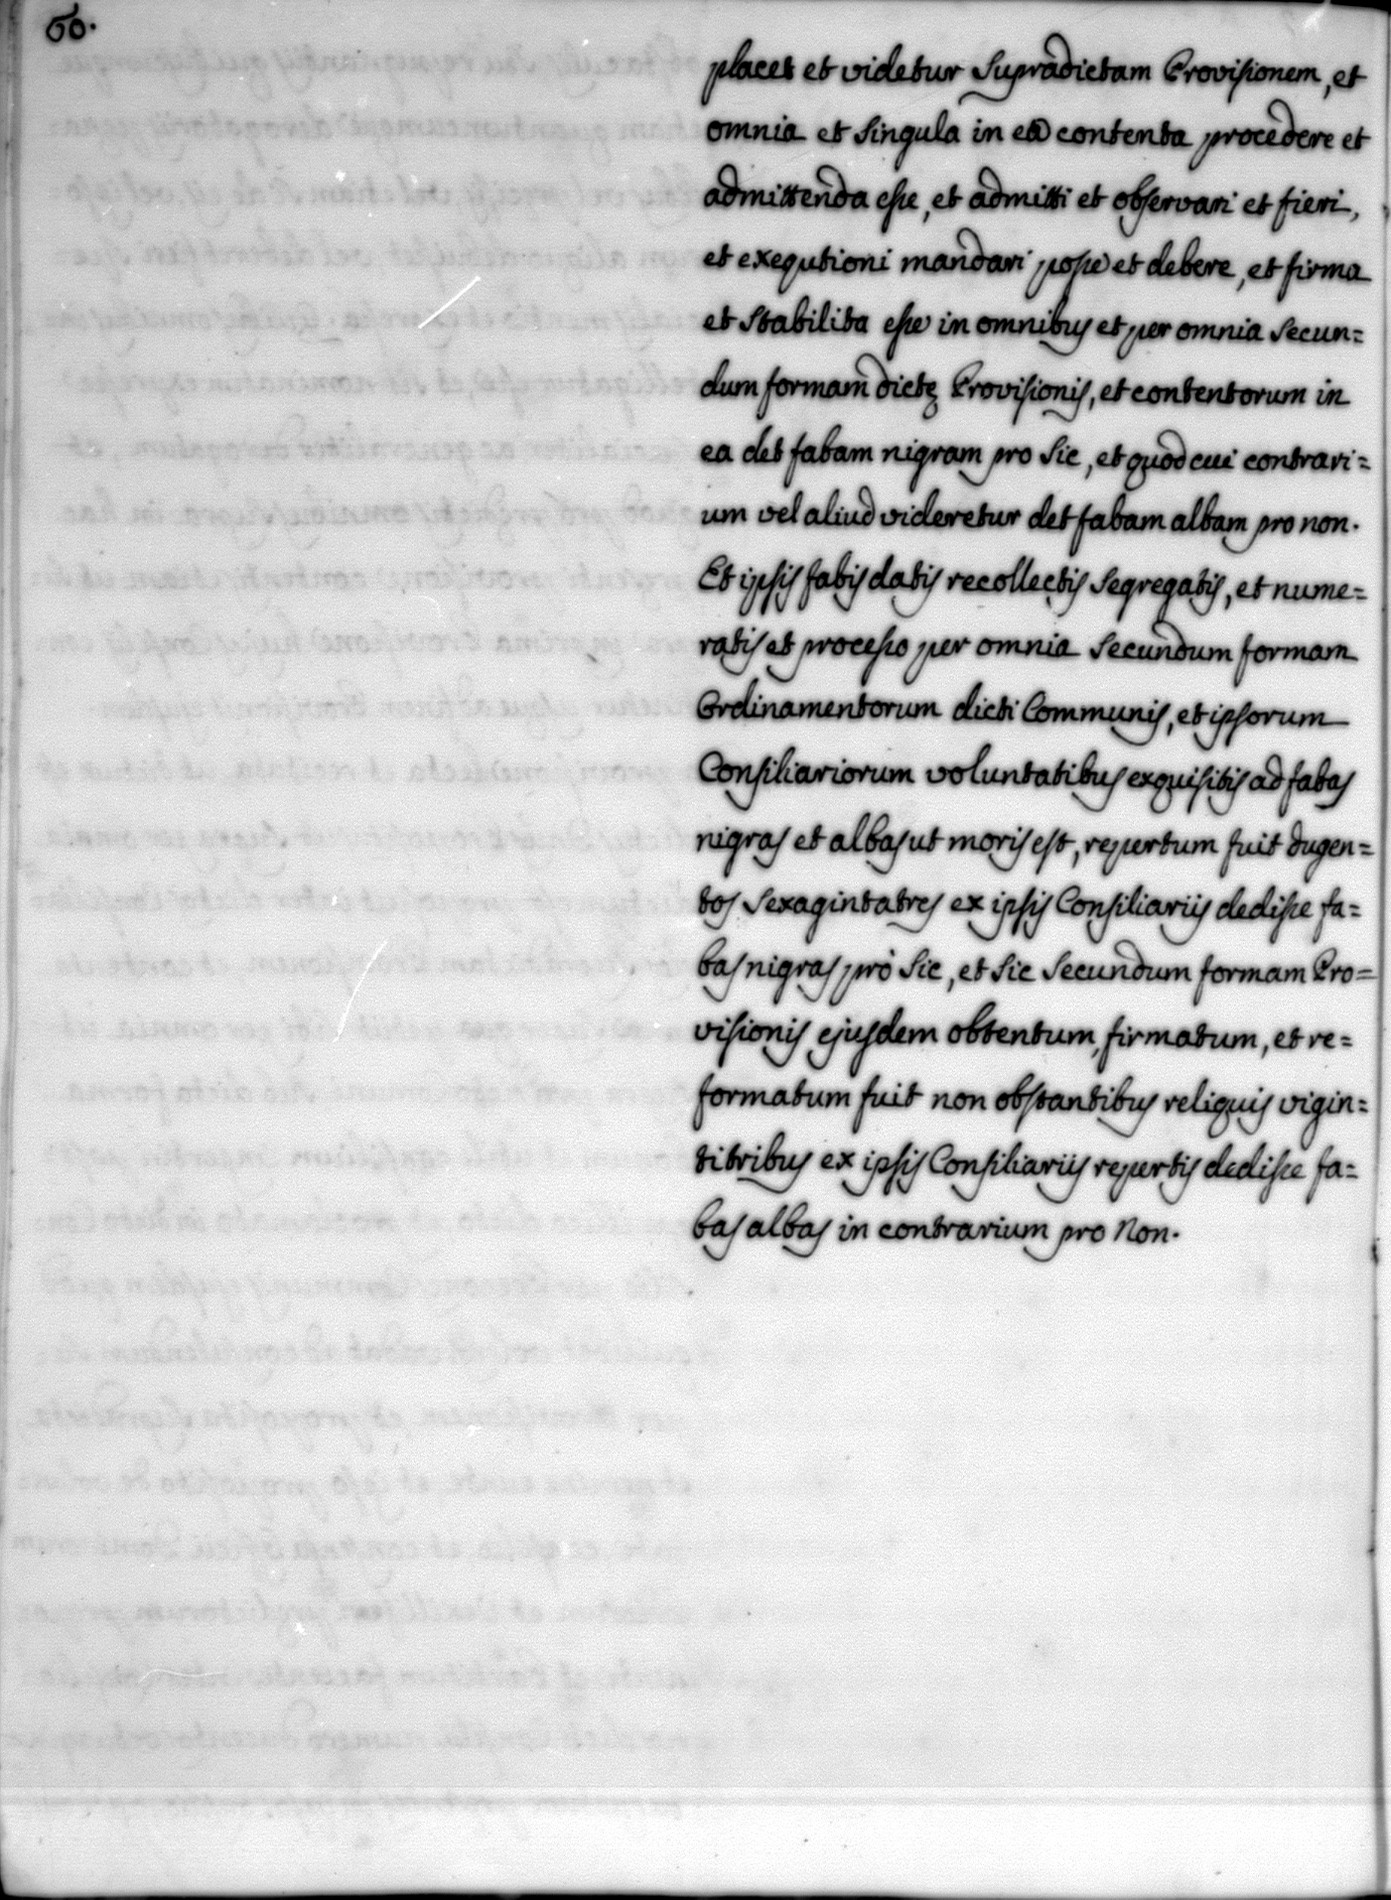 60.
placet et videtur supradictam Provisionem, et
omnia et singula in ea contenta procedere et
admittenda esse, et admitti et observari et fieri,
et exequtioni mandari posse et debere, et firma
et stabilita esse in omnibus et per omnia secun=
dum formam dictę Provisionis, et contentorum in
ea det fabam nigram pro sic, et quod cui contrari=
um vel aliud videretur det fabam albam pro non.
Et ipsis fabis datis recollectis segregatis, et nume=
ratis et processo per omnia secundum formam
Ordinamentorum dicti Communis, et ipsorum
Consiliariorum voluntatibus exquisitis ad fabas
nigras et albas ut moris est, repertum fuit dugen=
tos sexagintatres ex ipsis Consiliariis dedisse fa=
bas nigras prò sic, et sic secundum formam Pro=
visionis ejusdem obtentum, firmatum, et re=
formatum fuit non obstantibus reliquis vigin=
titribus ex ipsis Consiliariis repertis dedisse fa=
bas albas in contrarium pro Non.